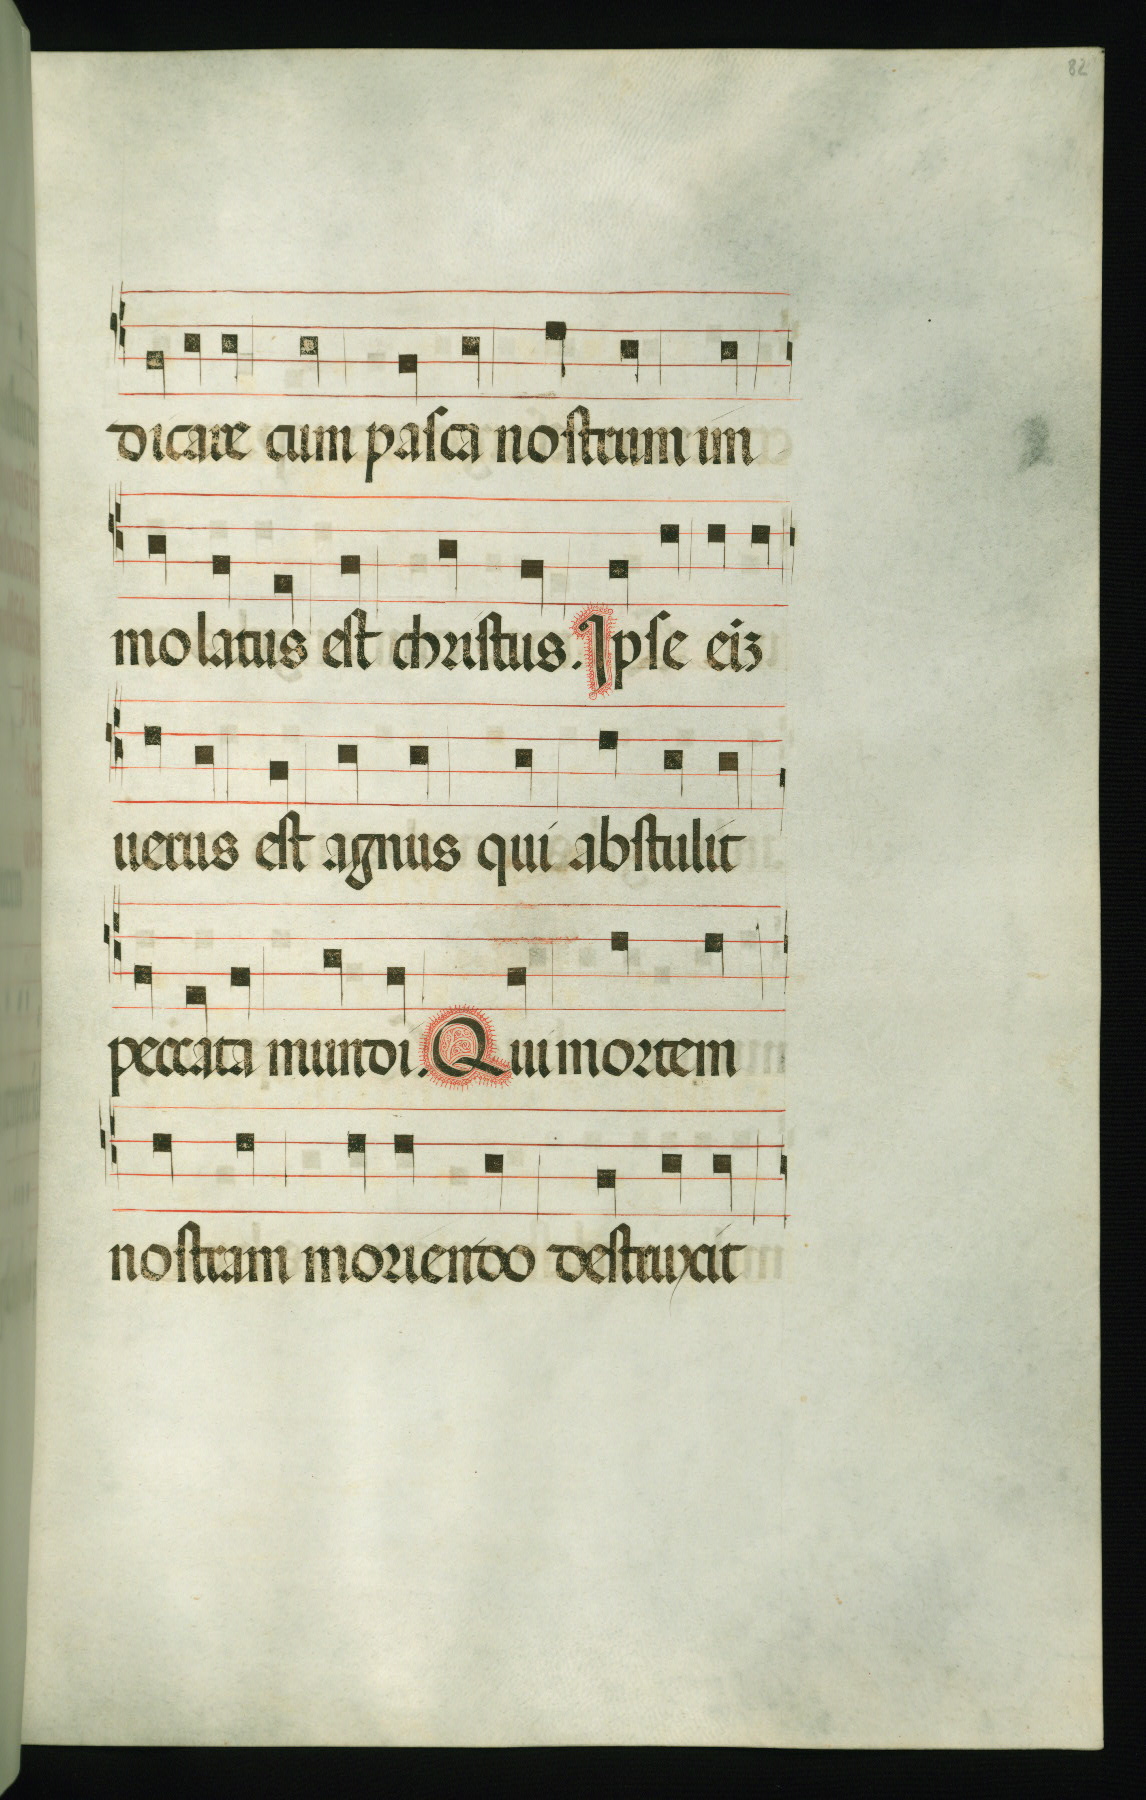 82
dicare cum pasca nostrum im
molatus est christus. Ipse eiz
uerus est agnus qui abstulit
peccata mundi. Qui mortem
nostram moriendo destruxit